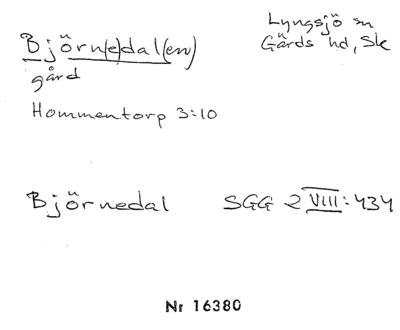 Björn(e)dal(en)
gård
Lyngsjö sn
Gärds hd, Sk
Hommentorp 3:10
Björnedal SGG 2 VIII: 434
Nr 16380